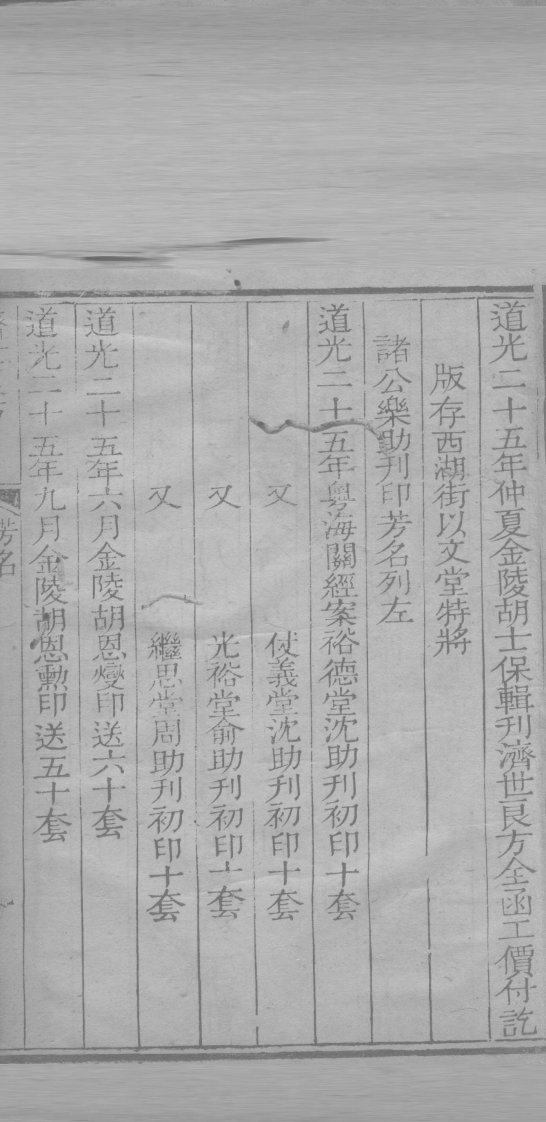 道光二十五年仲夏金陵胡士保輯刊濟世良方全函工價付訖
版存西湖街以文堂特將
諸公樂助刊印芳名列左
道光二十五年粵海關經案裕德堂沈助刊初印十套
又　仗義堂沈助刊初印十套
又　光裕堂俞助刊初印十套
又　繼思堂周助刊初印十套
道光二十五年六月金陵胡恩燮印送六十套
道光二十五年九月金陵胡恩勳印送五十套
芳名